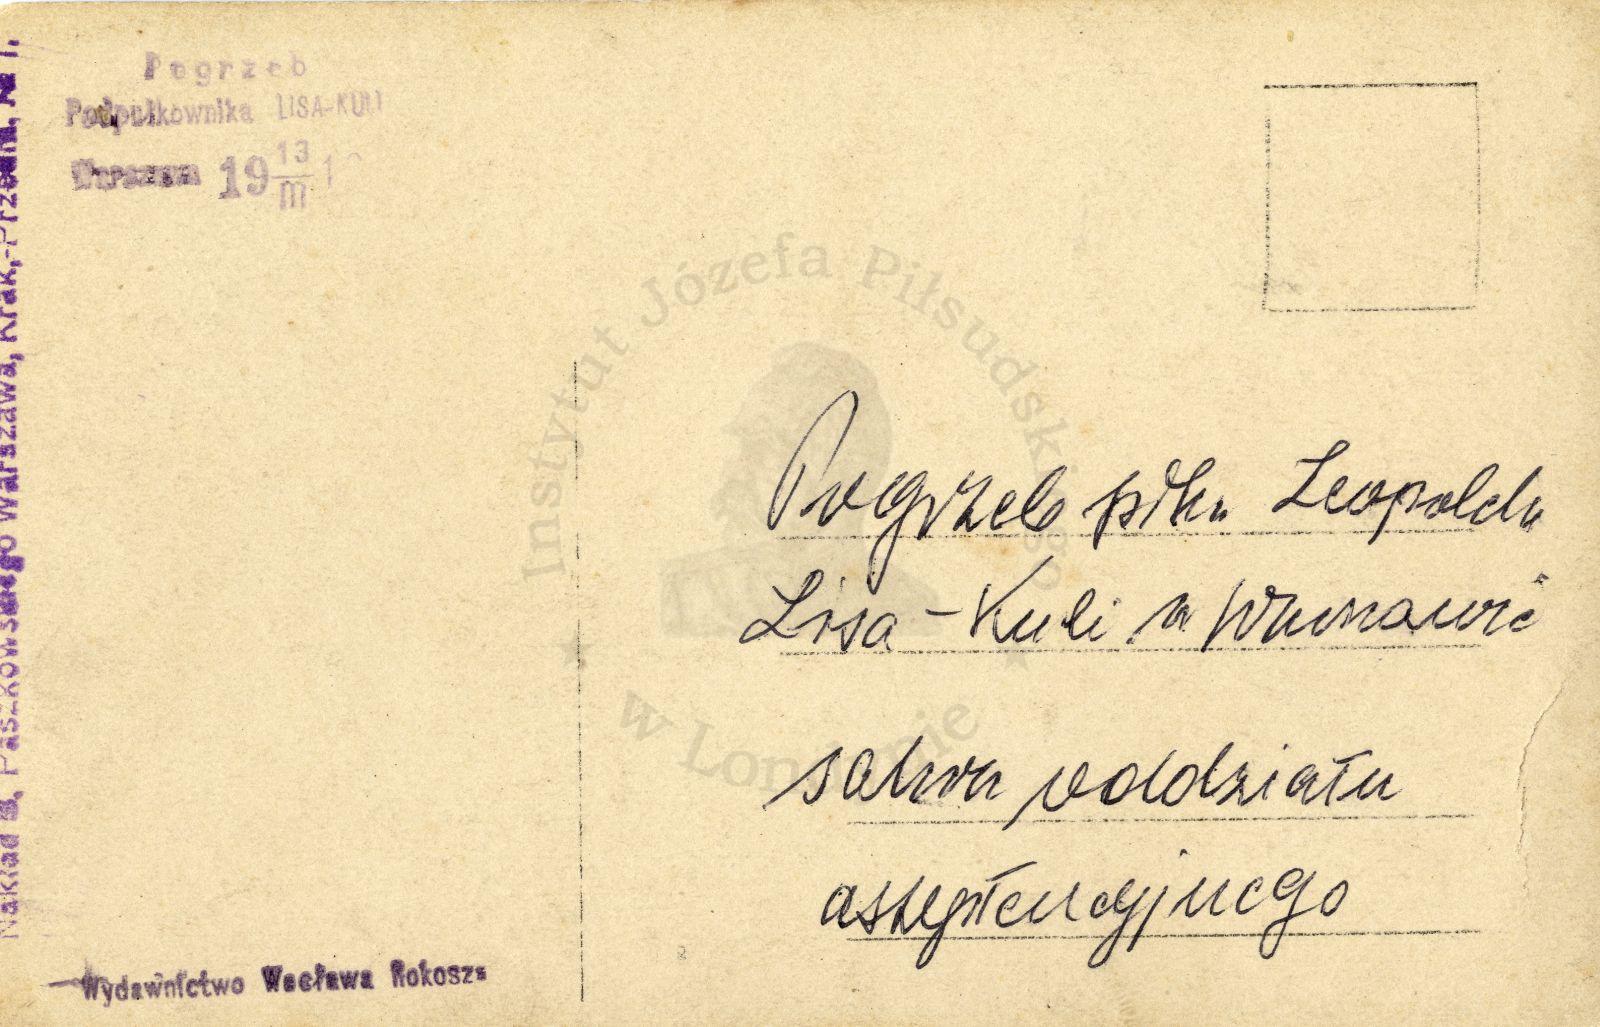 Pogrzeb
Podpułkownika LISA-KULI
Warszawa 19 13/III 1
Nakład B. Paszkowskiego Warszawa, Krak.-Przedm. № 1.
Instytut Józefa Piłsudskiego
w Londynie
Pogrzeb płka Leopolda
Lisa-Kuli w Warszawie
salwa oddziału
asystencyjnego
Wydawnictwo Wacława Rokosza